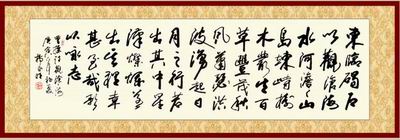 東臨碣石
以觀滄海
水何澹澹山
島竦峙樹
木叢生百
草豐茂秋
風蕭瑟洪
波湧起日
月之行若
出其中星
漢燦爛若
出其裏幸
甚至哉歌
以詠志